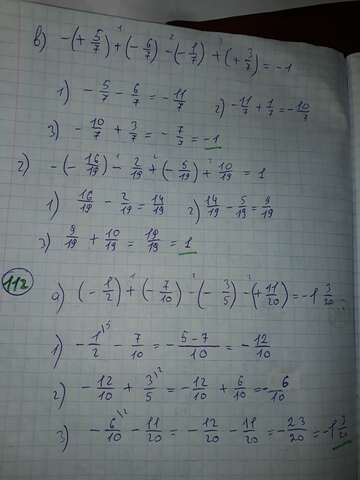 в) -(+5/7)+(-6/7)-(-1/7)+(+3/7)=-1
1) -5/7-6/7=-11/7 2) -11/7+1/7=-10/7
3) -10/7+3/7=-7/7=-1
г) -(-16/19)-2/19+(-5/19)+10/19=1
1) 16/19-2/19=14/19 2) 14/19-5/19=9/19
3) 9/19+10/19=19/19=1
112 а) (-1/2)+(-7/10)-(-3/5)-(+11/20)=-1 3/20
1) -1/2-7/10=-5-7/10=-12/10
2) -12/10+3/5=-12/10+6/10=-6/10
3) -6/10-11/20=-12/20-11/20=-23/20=-1 3/20